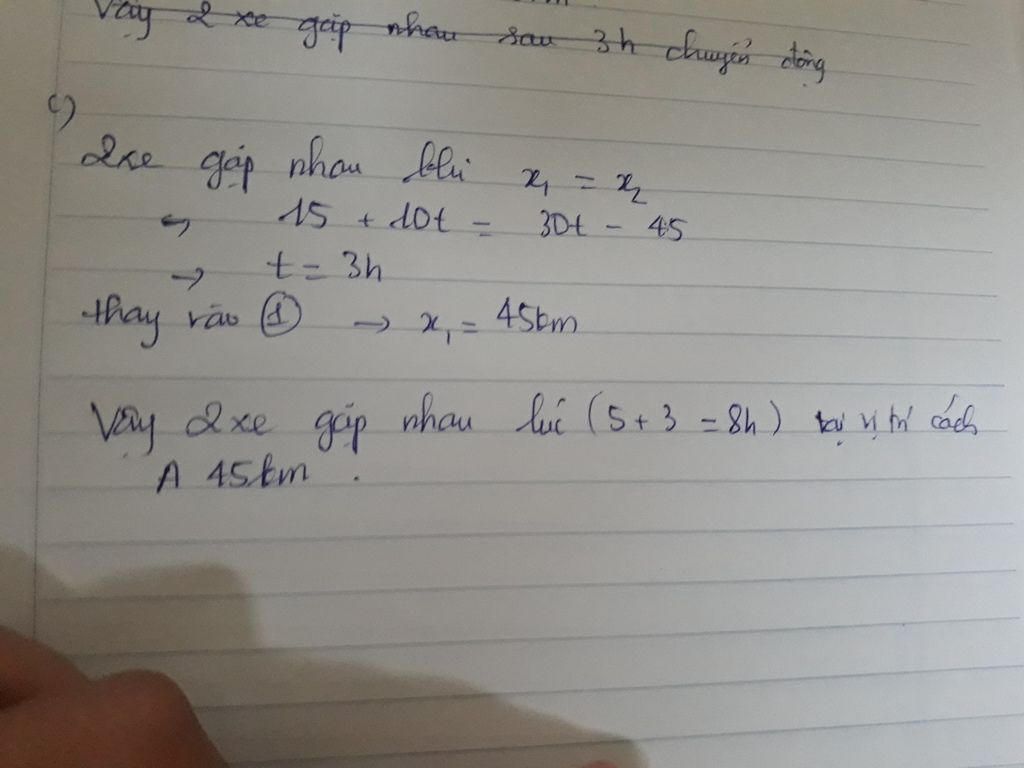 Vậy 2 xe gặp nhau sau 3h chuyển động
c)
2xe gặp nhau khi x₁ = x₂
↔ 15 + 10t = 30t - 45
→ t = 3h
thay vào ① → x₁ = 45km
Vậy 2xe gặp nhau lúc (5 + 3 = 8h) tại vị trí cách
A 45km .